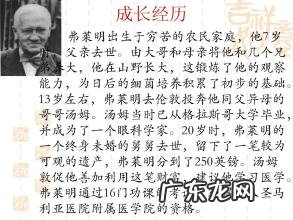 成长经历
弗莱明出生于穷苦的农民家庭，他7岁
父亲去世。由大哥和母亲将他和几个兄
大，他在山野长大，这锻炼了他的观察
能力，为日后的细菌培养积累了初步的基础。
13岁左右，弗莱明去伦敦投奔他同父异母的
哥哥汤姆。汤姆当时已从格拉斯哥大学毕业，
并成为了一个眼科学家。20岁时，弗莱明的
一个终身未婚的舅舅去世，留下了一笔较为
可观的遗产，弗莱明分到了250英镑。汤姆
敦促他善加利用这笔财富，建议他学习医学。
弗莱明通过16门功课
利亚医院附属医学院的资格。
圣马
广东龙网